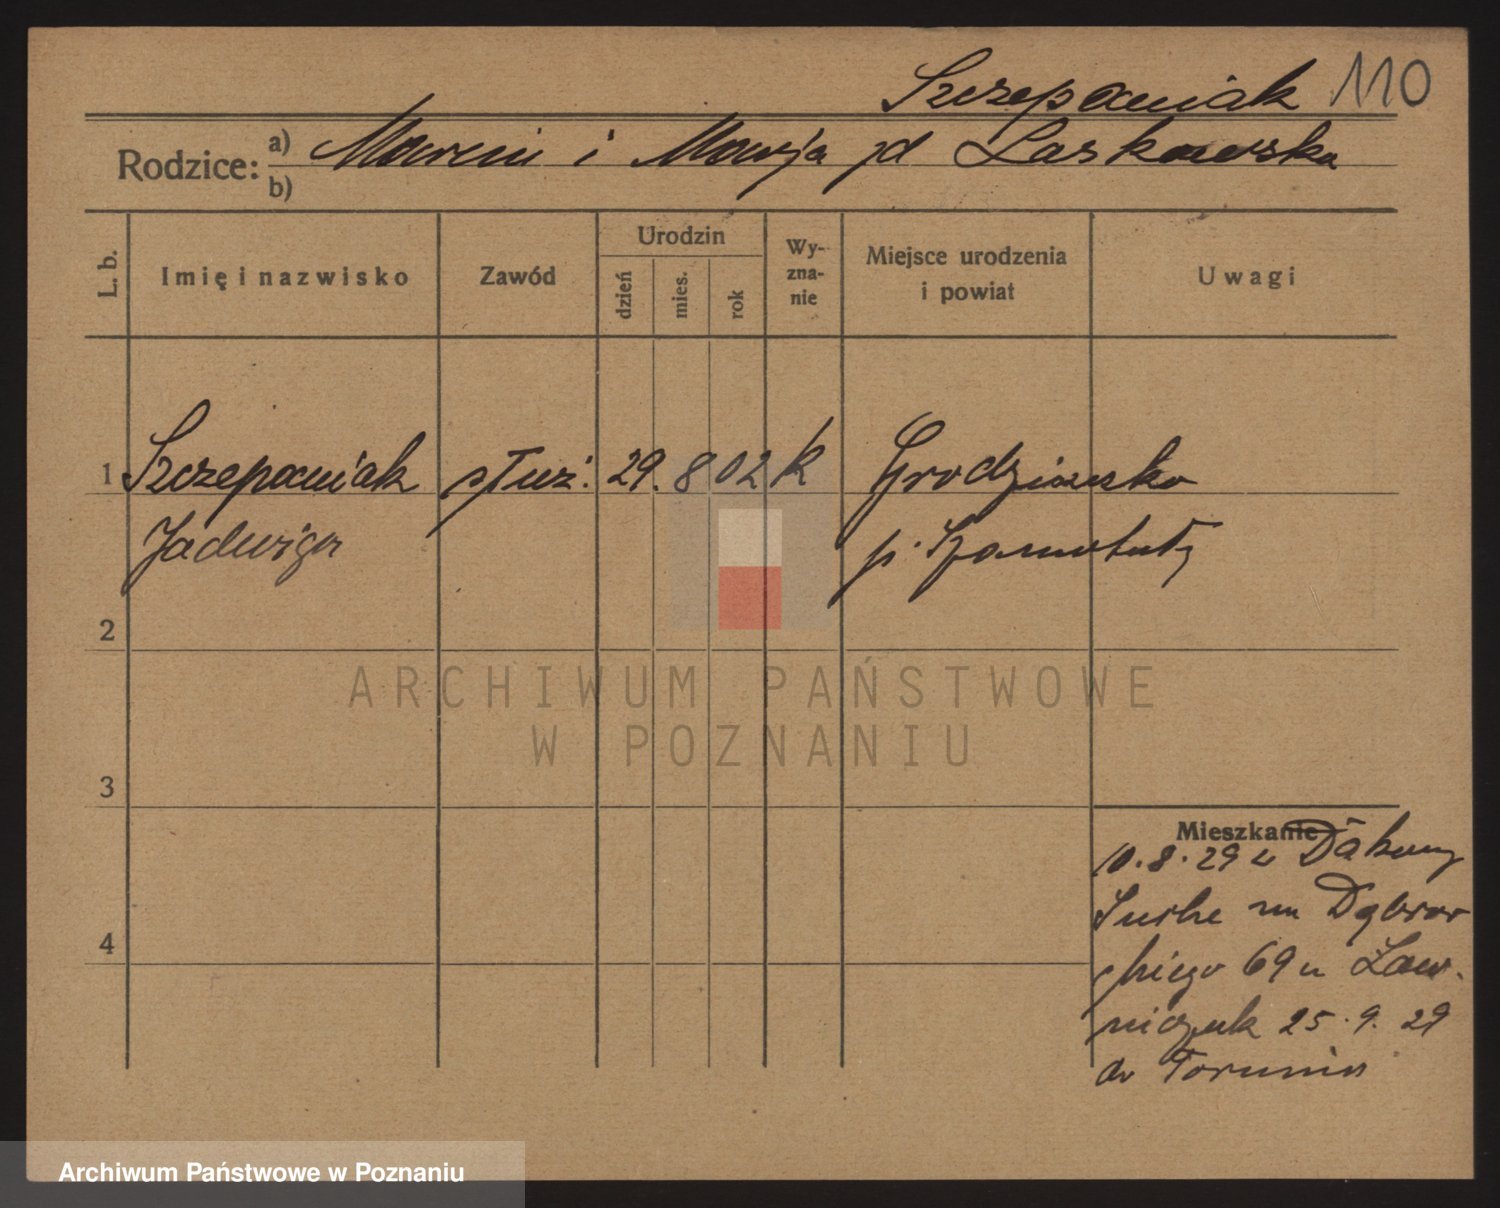 Szczepaniak 110
Rodzice: a) Marcin i Marja zd Laskowska
b)
L. b.
Imię i nazwisko
Zawód
Urodzin
dzień
mies.
rok
Wy-
zna-
nie
Miejsce urodzenia
i powiat
Uwagi
1 Szczepaniak służ. 29. 8 02 k Grodziszko
Jadwiga p. Szamotuły
2
3
4
Mieszkanie
10. 8. 29 z
na Dąbrow
skiego 69 u Ław.
niczak 25. 9. 29
do Torunia
ARCHIWUM PAŃSTWOWE
W POZNANIU
Archiwum Państwowe w Poznaniu